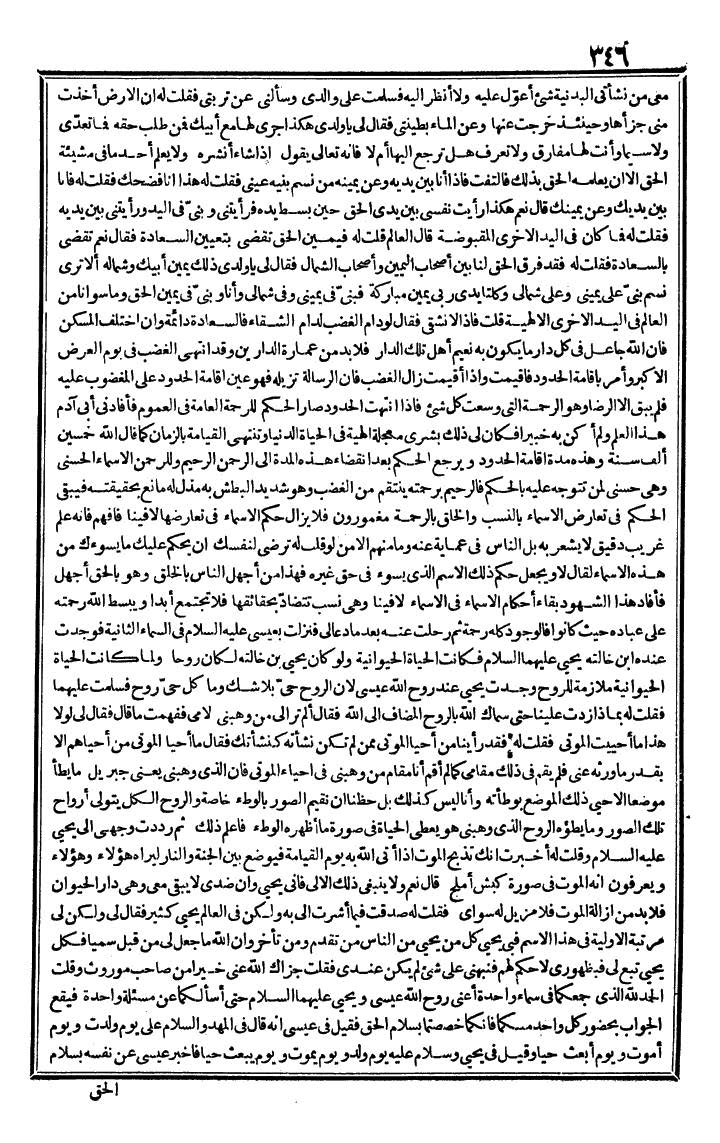 ٣٤٦
معى من نشأتى البدنية شئ أعوّل عليه ولا أنظر اليه فسلمت على والدى وسألنى عن تربتى فقلت له ان الارض أخذت
منى جزأها وحينئذ خرجت عنها وعن الماء بطينتى فقال لى ياولدى هكذا جرى لها مع أبيك فمن طلب حقه فما تعدّى
ولا سيما وأنت لها مفارق ولا تعرف هل ترجع اليها أم لا فانه تعالى يقول اذا شاء أنشره ولا يعلم أحد ما فى مشيئة
الحق الا ان يعلمه الحق بذلك فالتفت فاذا أنا بين يديه وعن يمينه من نسم بنيه عينى فقلت له هذا أنا فضحك فقلت له فانا
بين يديك وعن يمينك قال نعم هكذا رأيت نفسى بين يدى الحق حين بسط يده فرأيتنى وبنىّ فى اليد ورأيتنى بين يديه
فقلت له فما كان فى اليد الاخرى المقبوضة قال العالم قلت له فيمين الحق تقضى بتعيين السعادة فقال نعم تقضى
بالسعادة فقلت له فقد فرق الحق لنا بين أصحاب اليمين وأصحاب الشمال فقال لى ياولدى ذلك يمين أبيك وشماله ألا ترى
نسم بنىّ على يمينى وعلى شمالى وكلتا يدى ربى يمين مباركة فبنىّ فى يمينى وفى شمالى وأنا وبنىّ فى يمين الحق وما سوانا من
العالم فى اليد الاخرى الالهية قلت فاذا لا نشقى فقال لو دام الغضب لدام الشقاء فالسعادة دائمة وان اختلف المسكن
فان الله جاعل فى كل دار ما يكون به نعيم أهل تلك الدار فلابد من عمارة الدارين وقد انتهى الغضب فى يوم العرض
الاكبر وأمر باقامة الحدود فاقيمت واذا أقيمت زال الغضب فان الرسالة تزيله فهو عين اقامة الحدود على المغضوب عليه
فلم يبق الا الرضا وهو الرحمة التى وسعت كل شئ فاذا انتهت الحدود صار الحكم للرحمة العامة فى العموم فأفادنى أبى آدم
هذا العلم ولم أكن به خبيرا فكان لى ذلك بشرى معجلة الهية فى الحياة الدنيا وتنتهى القيامة بالزمان كما قال الله خمسين
ألف سنة وهذه مدة اقامة الحدود ويرجع الحكم بعد انقضاء هذه المدة الى الرحمن الرحيم وللرحمن الاسماء الحسنى
وهى حسنى لمن تتوجه عليه بالحكم فالرحيم برحمته ينتقم من الغضب وهو شديد البطش به مذل له مانع بحقيقته فيبقى
الحكم فى تعارض الاسماء بالنسب والخلق بالرحمة مغمورون فلا يزال حكم الاسماء فى تعارضها لا فينا فافهم فانه علم
غريب دقيق لا يشعر به بل الناس فى عماية عنه وما منهم الا من لو قلت له ترضى لنفسك ان يحكم عليك ما يسوءك من
هذه الاسماء لقال لا ويجعل حكم ذلك الاسم الذى يسوء فى حق غيره فهذا من أجهل الناس بالخلق وهو بالحق أجهل
فأفاد هذا الشهود بقاء أحكام الاسماء فى الاسماء لا فينا وهى نسب تتضادّ بحقائقها فلا تجتمع أبدا ويبسط الله رحمته
على عباده حيث كانوا فالوجود كله رحمة ثم رحلت عنه بعد ما دعا لى فنزلت بعيسى عليه السلام فى السماء الثانية فوجدت
عنده ابن خالته يحيى عليهما السلام فكانت الحياة الحيوانية ولو كان يحيى بن خالته لكان روحا ولما كانت الحياة
الحيوانية ملازمة للروح وجدت يحيى عند روح الله عيسى لان الروح حىّ بلا شك وما كل حىّ روح فسلمت عليهما
فقلت له بماذا زدت علينا حتى سماك الله بالروح المضاف الى الله فقال ألم تر الى من وهبنى لامى ففهمت ما قال فقال لى لولا
هذا ما أحييت الموتى فقلت له فقد رأينا من أحيا الموتى ممن لم تكن نشأته كنشأتك فقال ما أحيا الموتى من أحياهم الا
بقدر ما ورثه عنى فلم يقم فى ذلك مقامى كما لم أقم أنا مقام من وهبنى فى احياء الموتى فان الذى وهبنى يعنى جبريل ما يطأ
موضعا الا حيى ذلك الموضع بوطأته وأنا ليس كذلك بل حظنا ان نقيم الصور بالوطء خاصة والروح الكل يتولى أرواح
تلك الصور وما يطؤه الروح الذى وهبنى هو يعطى الحياة فى صورة ما أظهره الوطء فاعلم ذلك ثم رددت وجهى الى يحيى
عليه السلام وقلت له أخبرت انك تذبح الموت اذا أتى الله به يوم القيامة فيوضع بين الجنة والنار ليراه هؤلاء وهؤلاء
ويعرفون انه الموت فى صورة كبش أملح قال نعم ولا ينبغى ذلك الا لى فانى يحيى وان ضدى لا يبقى معى وهى دار الحيوان
فلابد من ازالة الموت فلا مزيل له سواى فقلت له صدقت فيما أشرت الى به ولكن فى العالم يحيى كثير فقال لى ولكن لى
مرتبة الاولية فى هذا الاسم فبى يحيى كل من يحيى من الناس من تقدم ومن تأخر وان الله ما جعل لى من قبل سميا فكل
يحيى تبع لى فبظهورى لا حكم لهم فنبهنى على شئ لم يكن عندى فقلت جزاك الله عنى خيرا من صاحب موروث وقلت
الحمد لله الذى جمعكما فى سماء واحدة أعنى روح الله عيسى ويحيى عليهما السلام حتى أسألكما عن مسئلة واحدة فيقع
الجواب بحضور كل واحد منكما فانكما خصصتما بسلام الحق فقيل فى عيسى انه قال فى المهد والسلام علىّ يوم ولدت ويوم
أموت ويوم أبعث حيا وقيل فى يحيى وسلام عليه يوم ولد ويوم يموت ويوم يبعث حيا فاخبر عيسى عن نفسه بسلام
الحق